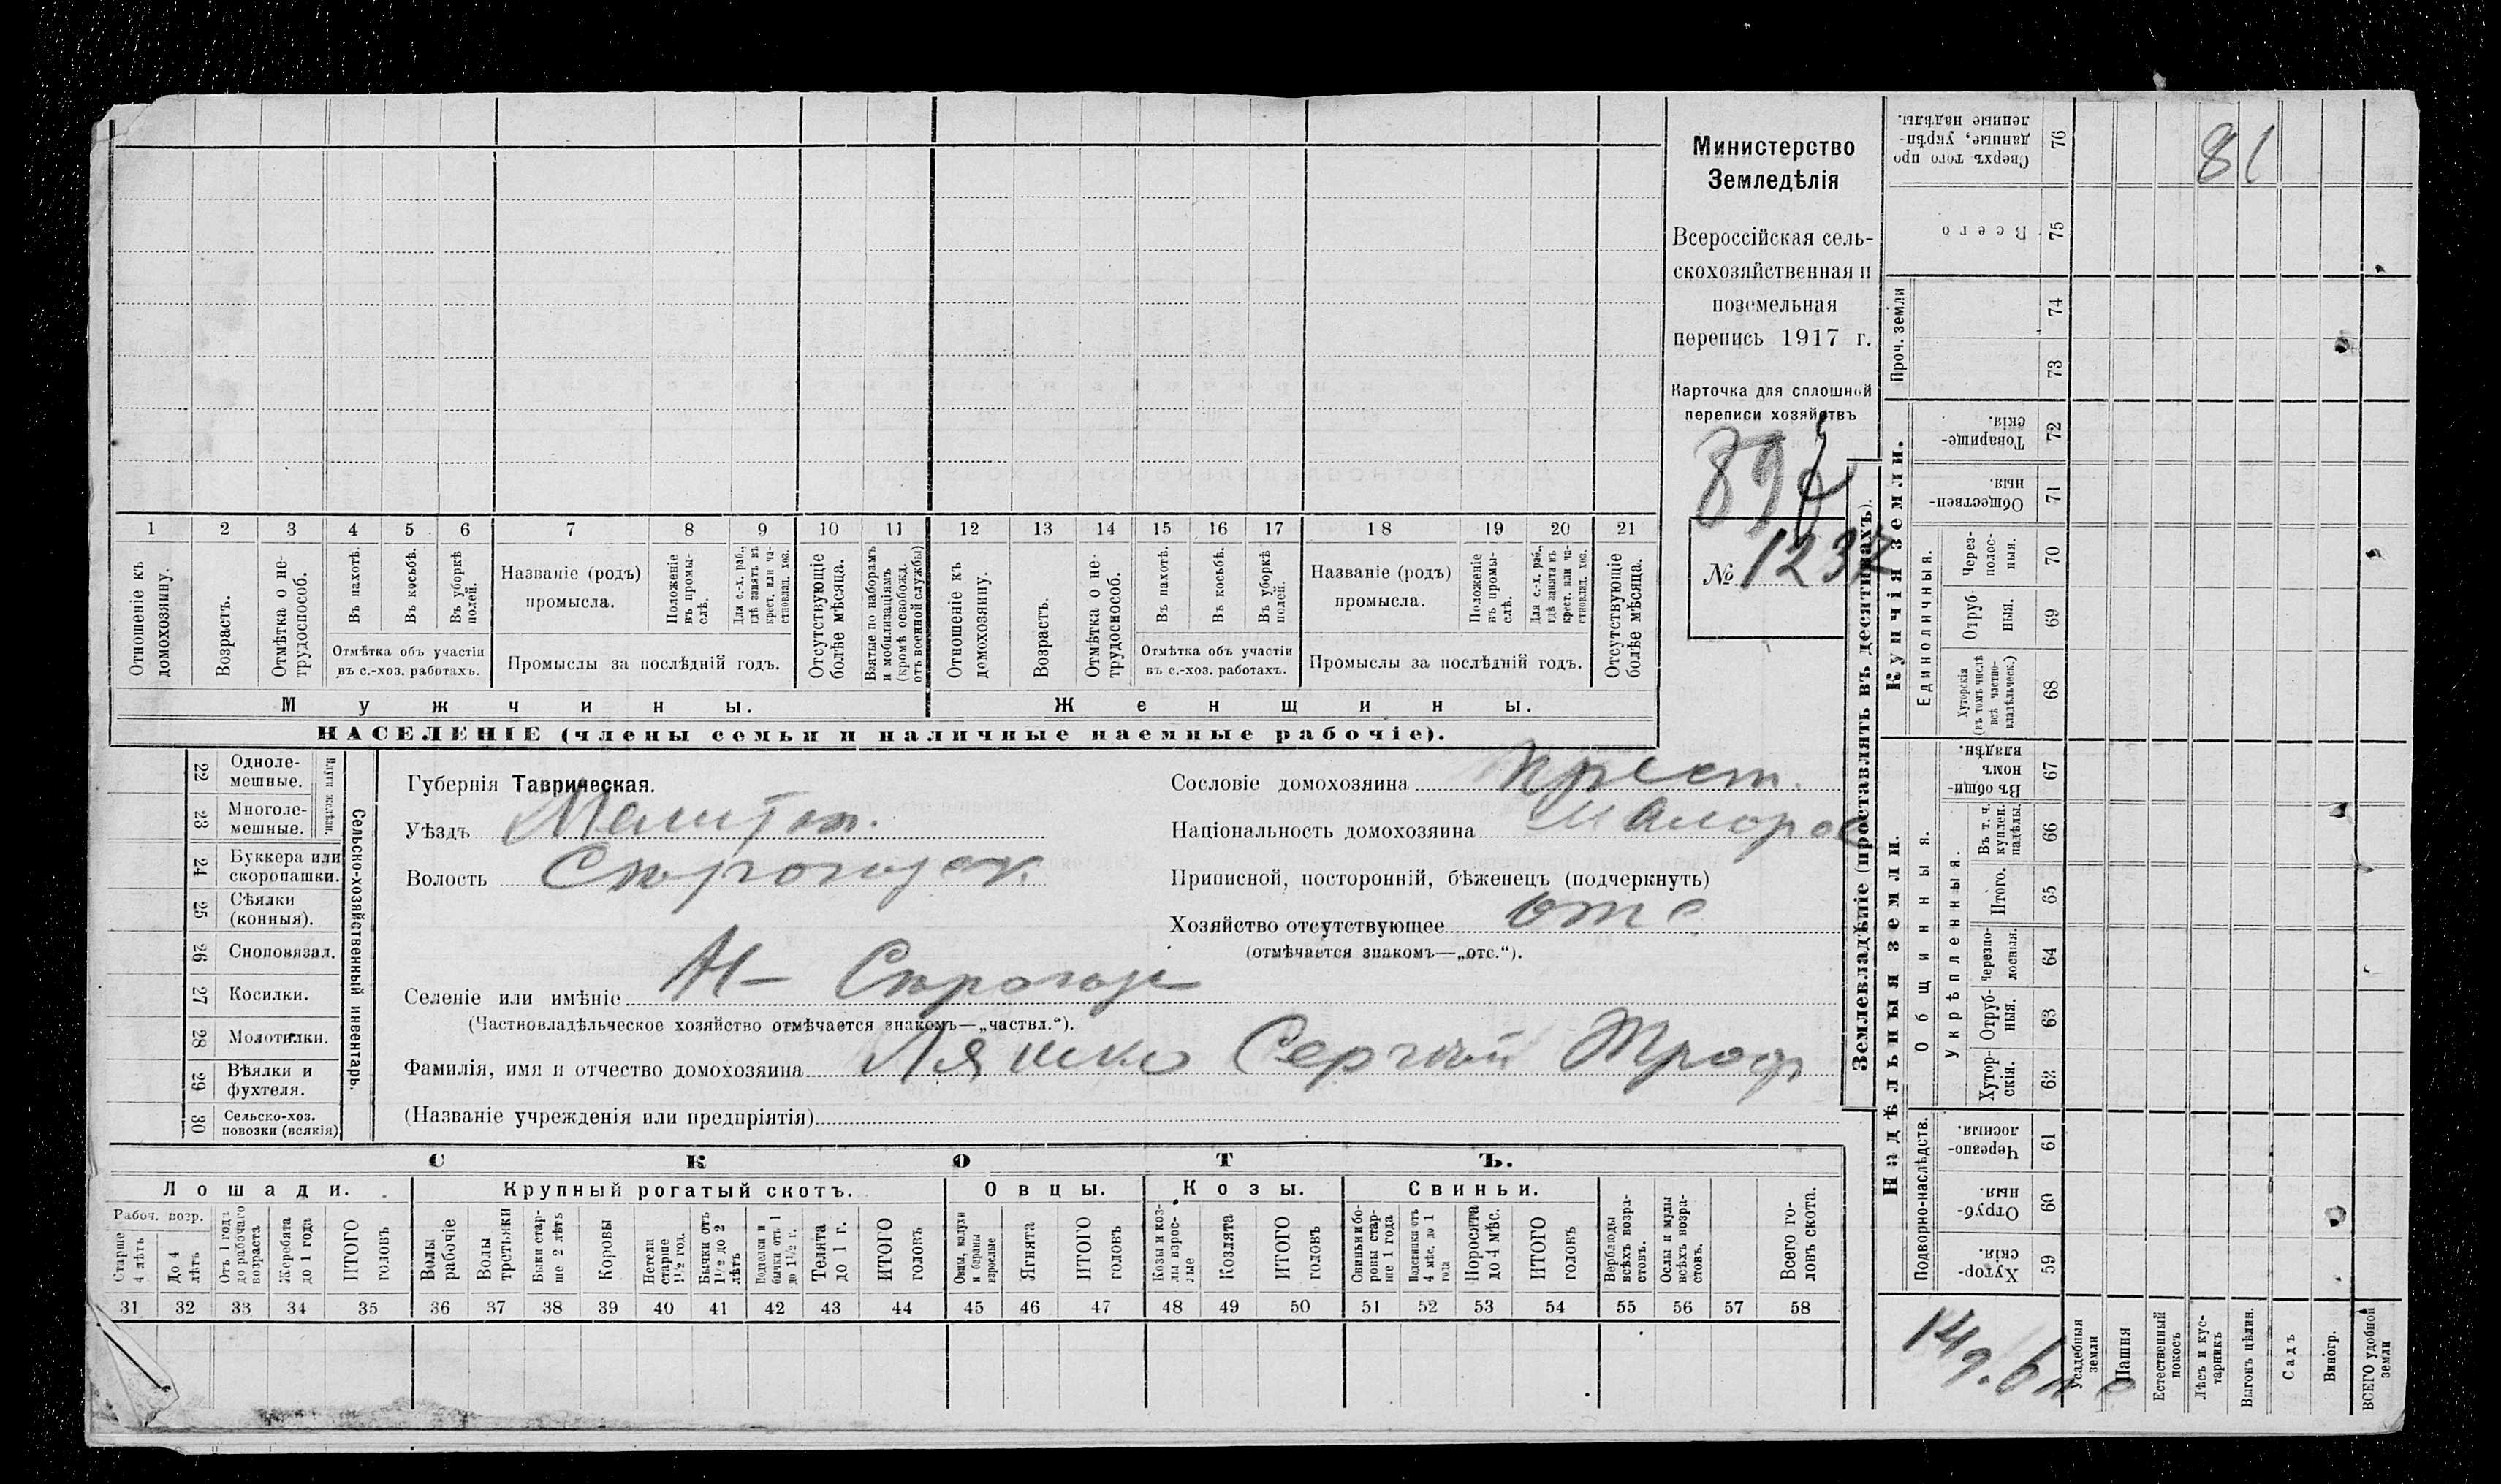 Министерство
Земледѣлія
Всероссійская сель-
скохозяйственная и
поземельная
перепись 1917 г.
Карточка для сплошной
переписи хозяйствъ
№ 1237
81
1 2 3 4 5 6 7 8 9 10 11 12 13 14 15 16 17 18 19 20 21
Отношеніе къ домохозяину.
Возрастъ.
Отмѣтка о не-трудоспособ.
Въ пахотѣ.
Въ косьбѣ.
Въ уборкѣ полей.
Отмѣтка объ участіи
въ с.-хоз. работахъ.
Названіе (родъ)
промысла.
Положеніе въ промы-слѣ.
Для с.-х. раб., гдѣ занятъ въ крест. или ча-стновлад. хоз.
Промыслы за послѣдній годъ.
Отсутствующіе болѣе мѣсяца.
Взятые по наборамъ и мобилизаціямъ (кромѣ освобожд. отъ военной службы)
Отношеніе къ домохозяину.
Возрастъ.
Отмѣтка о не-трудоспособ.
Въ пахотѣ.
Въ косьбѣ.
Въ уборкѣ полей.
Отмѣтка объ участіи
въ с.-хоз. работахъ.
Названіе (родъ)
промысла.
Положеніе въ промы-слѣ.
Для с.-х. раб., гдѣ занята въ крест. или ча-стновлад. хоз.
Промыслы за послѣдній годъ.
Отсутствующіе болѣе мѣсяца.
Мужчины.
Женщины.
НАСЕЛЕНІЕ (члены семьи и наличные наемные рабочіе).
22 Одноле-мешные.
23 Многоле-мешные.
Плуги желѣзн.
24 Буккера или скоропашки.
25 Сѣялки (конныя).
26 Сноповязал.
27 Косилки.
28 Молотилки.
29 Вѣялки и фухтеля.
30 Сельско-хоз. повозки (всякія)
Сельско-хозяйственный инвентарь.
Губернія Таврическая.
Уѣздъ Мелитоп.
Волость Сѣрогозск.
Селеніе или имѣніе Н- Сѣрогозы
(Частновладѣльческое хозяйство отмѣчается знакомъ—„частвл.“).
Фамилія, имя и отчество домохозяина Ляшко Сергѣй Троф
(Названіе учрежденія или предпріятія)
Сословіе домохозяина крест.
Національность домохозяина малорос
Приписной, посторонній, бѣженецъ (подчеркнуть)
Хозяйство отсутствующее отс
(отмѣчается знакомъ—„отс.“).
СКОТЪ.
Лошади.
Крупный рогатый скотъ.
Овцы.
Козы.
Свиньи.
Рабоч. возр.
Старше 4 лѣтъ
До 4 лѣтъ
Отъ 1 года до рабочаго возраста
Жеребята до 1 года
ИТОГО головъ
Волы рабочіе
Волы третьяки
Быки стар-ше 2 лѣтъ
Коровы
Нетели старше 1½ год.
Бычки отъ 1½ до 2 лѣтъ
Подтелки и бычки отъ 1 до 1½ г.
Телята до 1 г.
ИТОГО головъ
Овцы, валухи и бараны взрослые
Ягнята
ИТОГО головъ
Козы и коз-лы взрос-лые
Козлята
ИТОГО головъ
Свиньи и бо-ровы стар-ше 1 года
Подсвинки отъ 4 мѣс. до 1 года
Поросята до 4 мѣс.
ИТОГО головъ
Верблюды всѣхъ возра-стовъ.
Ослы и мулы всѣхъ возра-стовъ.
Всего го-ловъ скота.
31 32 33 34 35 36 37 38 39 40 41 42 43 44 45 46 47 48 49 50 51 52 53 54 55 56 57 58
Землевладѣніе (проставлять въ десятинахъ).
Надѣльныя земли.
Купчія земли.
Проч. земли
Подворно-наслѣдств.
Общинныя.
Укрѣпленныя.
Единоличныя.
59 Хутор-скія.
60 Отруб-ныя.
61 Черезпо-лосныя.
62 Хутор-скія.
63 Отруб-ныя.
64 Черезпо-лосныя.
65 Итого.
66 Въ т. ч. куплен. надѣлы.
67 Въ общин-номъ владѣн.
68 Хуторскія (въ томъ числѣ всѣ частно-владѣльческ.)
69 Отруб-ныя.
70 Через-полос-ныя.
71 Обществен-ныя.
72 Товарище-скія.
73
74
75 Всего
76 Сверхъ того про-данные, укрѣп-ленные надѣлы.
Усадебныя земли
Пашня
Естественный покосъ
Лѣсъ и кус-тарникъ
Выгонъ цѣлин.
Садъ
Виногр.
ВСЕГО удобной земли